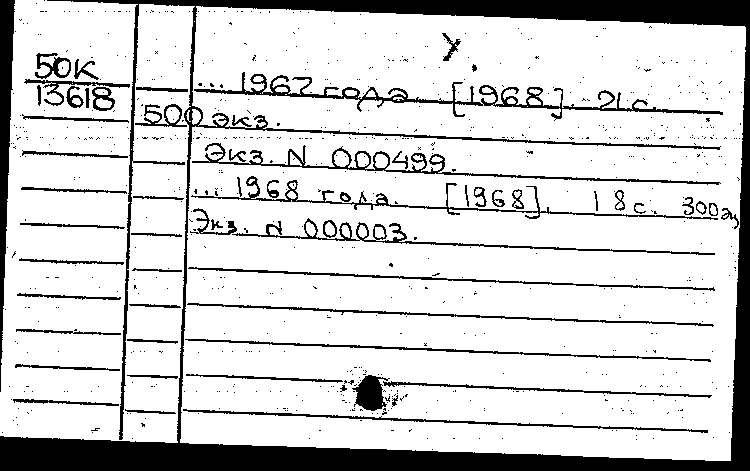 У.
50К
13618
... 1967 года. [1968]. 21 с.
500 экз.
Экз. N 000499.
... 1968 года. [1968]. 18 с. 300 э
Экз. N 000003.